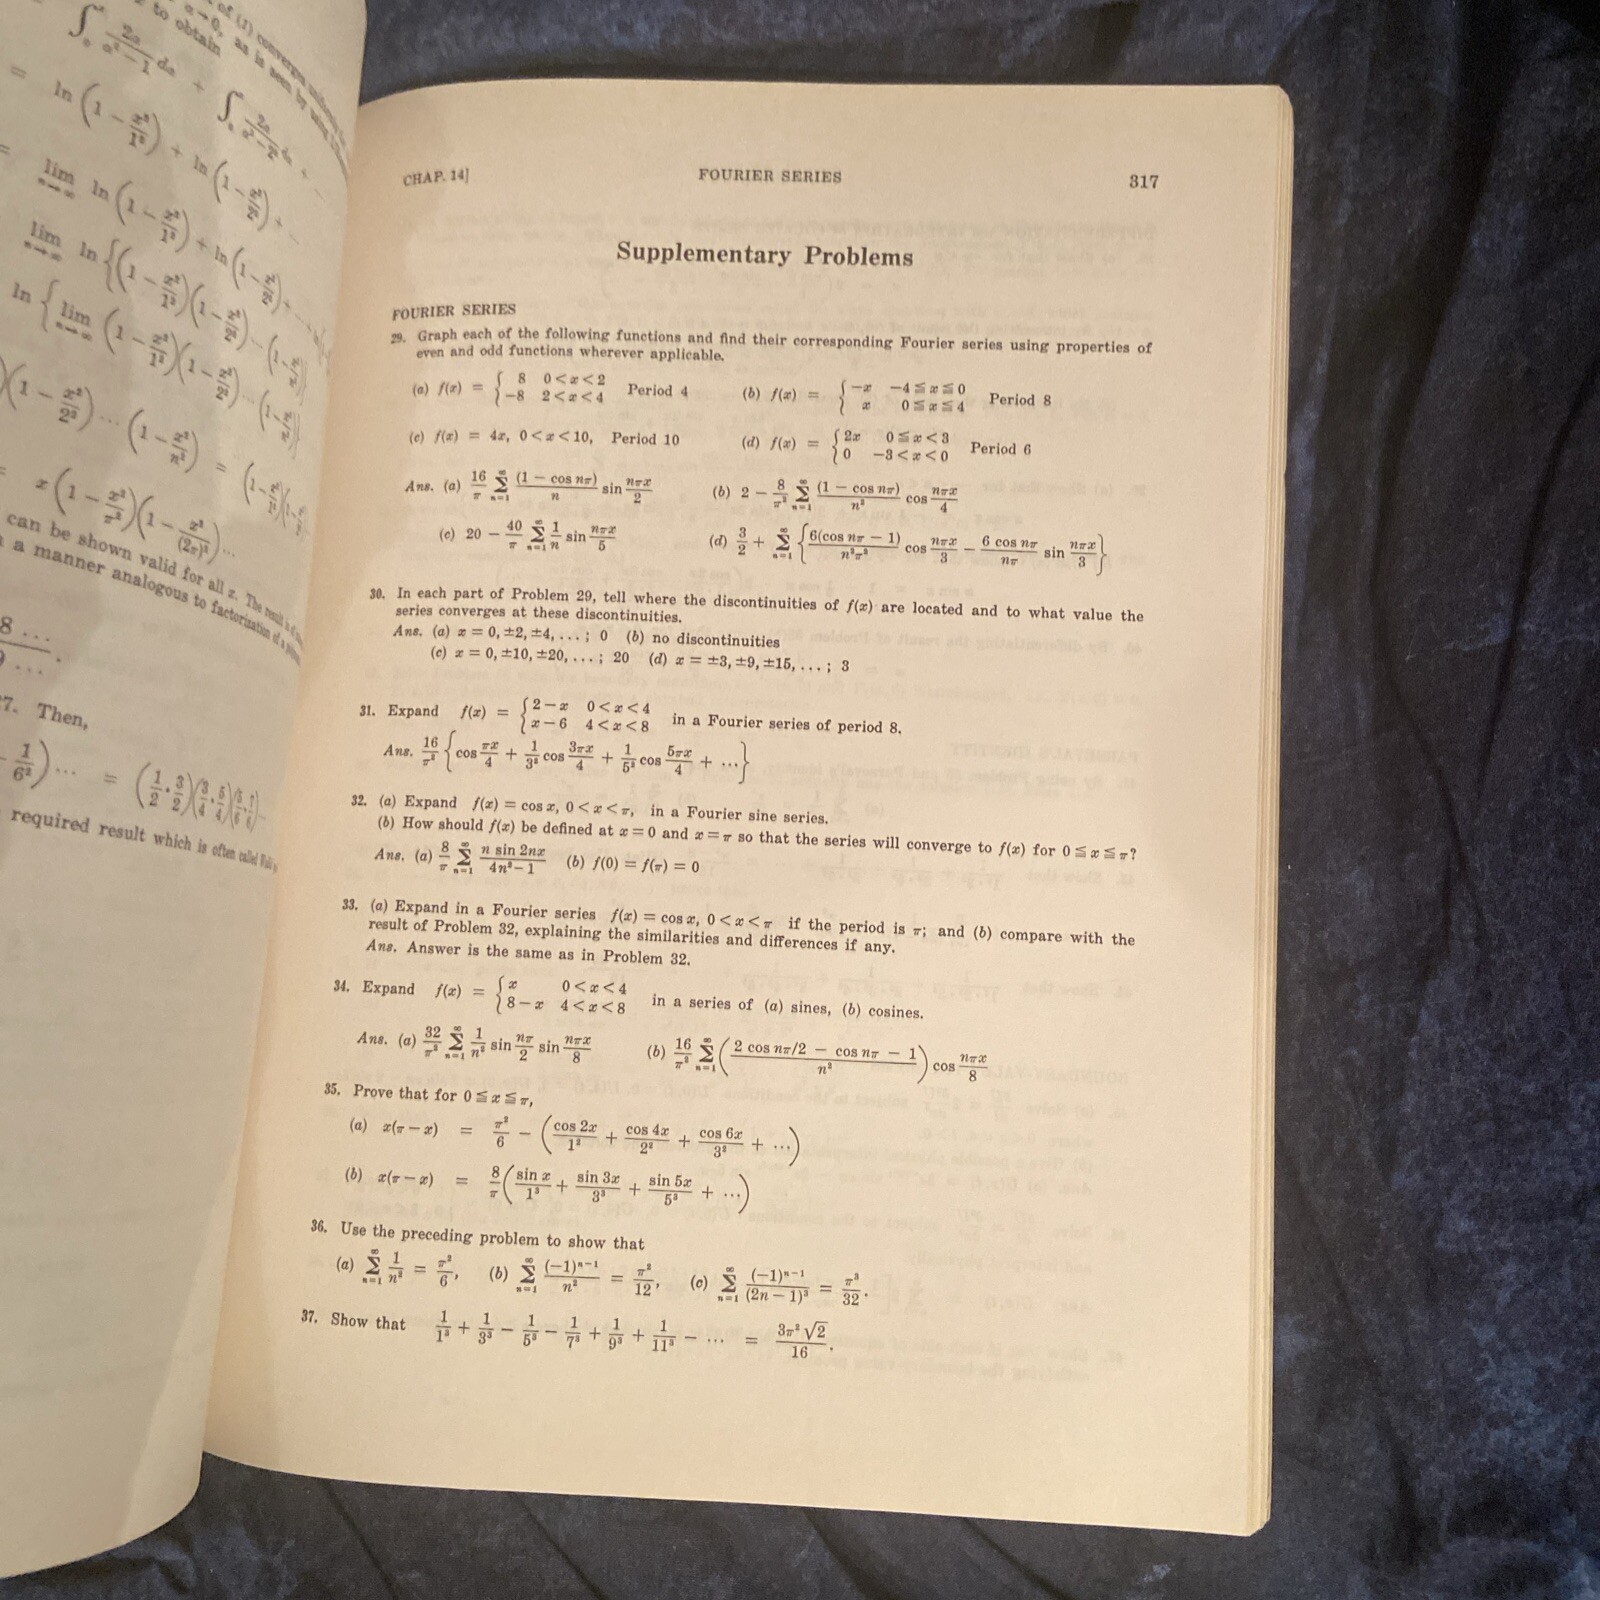 of (1) converges
α→0, as is seen by using
to obtain
∫ 2α/(α² − 1) dα + ∫
= ln (1 − x²/1²) + ln (1 −
= lim n→∞ ln (1 − x²/1²) + ln (1 −
lim n→∞ ln {(1 − x²/1²)(1 −
ln { lim n→∞ (1 − x²/1²)(1 −
(1 − x²/2²) ⋯ (1 − x²/n²) =
= x (1 − x²/π²)(1 − x²/(2π)²) ⋯
can be shown valid for all x. The result is
a manner analogous to factorization of a
8 ...
9 ...
27. Then,
1/6²) ⋯ = (1/2 · 3/2)(3/4 · 5/4)(5/6 · 7/6) ⋯
required result which is often called
CHAP. 14] FOURIER SERIES 317
Supplementary Problems
FOURIER SERIES
29. Graph each of the following functions and find their corresponding Fourier series using properties of
even and odd functions wherever applicable.
(a) f(x) = { 8 0<x<2 ; −8 2<x<4 Period 4 (b) f(x) = { −x −4≦x≦0 ; x 0≦x≦4 Period 8
(c) f(x) = 4x, 0<x<10, Period 10 (d) f(x) = { 2x 0≦x<3 ; 0 −3<x<0 Period 6
Ans. (a) 16/π ∞Σn=1 (1 − cos nπ)/n sin nπx/2 (b) 2 − 8/π² ∞Σn=1 (1 − cos nπ)/n² cos nπx/4
(c) 20 − 40/π ∞Σn=1 1/n sin nπx/5 (d) 3/2 + ∞Σn=1 { 6(cos nπ − 1)/n²π² cos nπx/3 − 6 cos nπ/nπ sin nπx/3 }
30. In each part of Problem 29, tell where the discontinuities of f(x) are located and to what value the
series converges at these discontinuities.
Ans. (a) x = 0, ±2, ±4, ... ; 0 (b) no discontinuities
(c) x = 0, ±10, ±20, ... ; 20 (d) x = ±3, ±9, ±15, ... ; 3
31. Expand f(x) = { 2−x 0<x<4 ; x−6 4<x<8 in a Fourier series of period 8.
Ans. 16/π² { cos πx/4 + 1/3² cos 3πx/4 + 1/5² cos 5πx/4 + ⋯ }
32. (a) Expand f(x) = cos x, 0<x<π, in a Fourier sine series.
(b) How should f(x) be defined at x=0 and x=π so that the series will converge to f(x) for 0≦x≦π?
Ans. (a) 8/π ∞Σn=1 n sin 2nx/(4n²−1) (b) f(0) = f(π) = 0
33. (a) Expand in a Fourier series f(x) = cos x, 0<x<π if the period is π; and (b) compare with the
result of Problem 32, explaining the similarities and differences if any.
Ans. Answer is the same as in Problem 32.
34. Expand f(x) = { x 0<x<4 ; 8−x 4<x<8 in a series of (a) sines, (b) cosines.
Ans. (a) 32/π² ∞Σn=1 1/n² sin nπ/2 sin nπx/8 (b) 16/π² ∞Σn=1 ( (2 cos nπ/2 − cos nπ − 1)/n² ) cos nπx/8
35. Prove that for 0≦x≦π,
(a) x(π−x) = π²/6 − ( cos 2x/1² + cos 4x/2² + cos 6x/3² + ⋯ )
(b) x(π−x) = 8/π ( sin x/1³ + sin 3x/3³ + sin 5x/5³ + ⋯ )
36. Use the preceding problem to show that
(a) ∞Σn=1 1/n² = π²/6, (b) ∞Σn=1 (−1)ⁿ⁻¹/n² = π²/12, (c) ∞Σn=1 (−1)ⁿ⁻¹/(2n−1)³ = π³/32.
37. Show that 1/1³ + 1/3³ − 1/5³ − 1/7³ + 1/9³ + 1/11³ − ⋯ = 3π²√2/16.